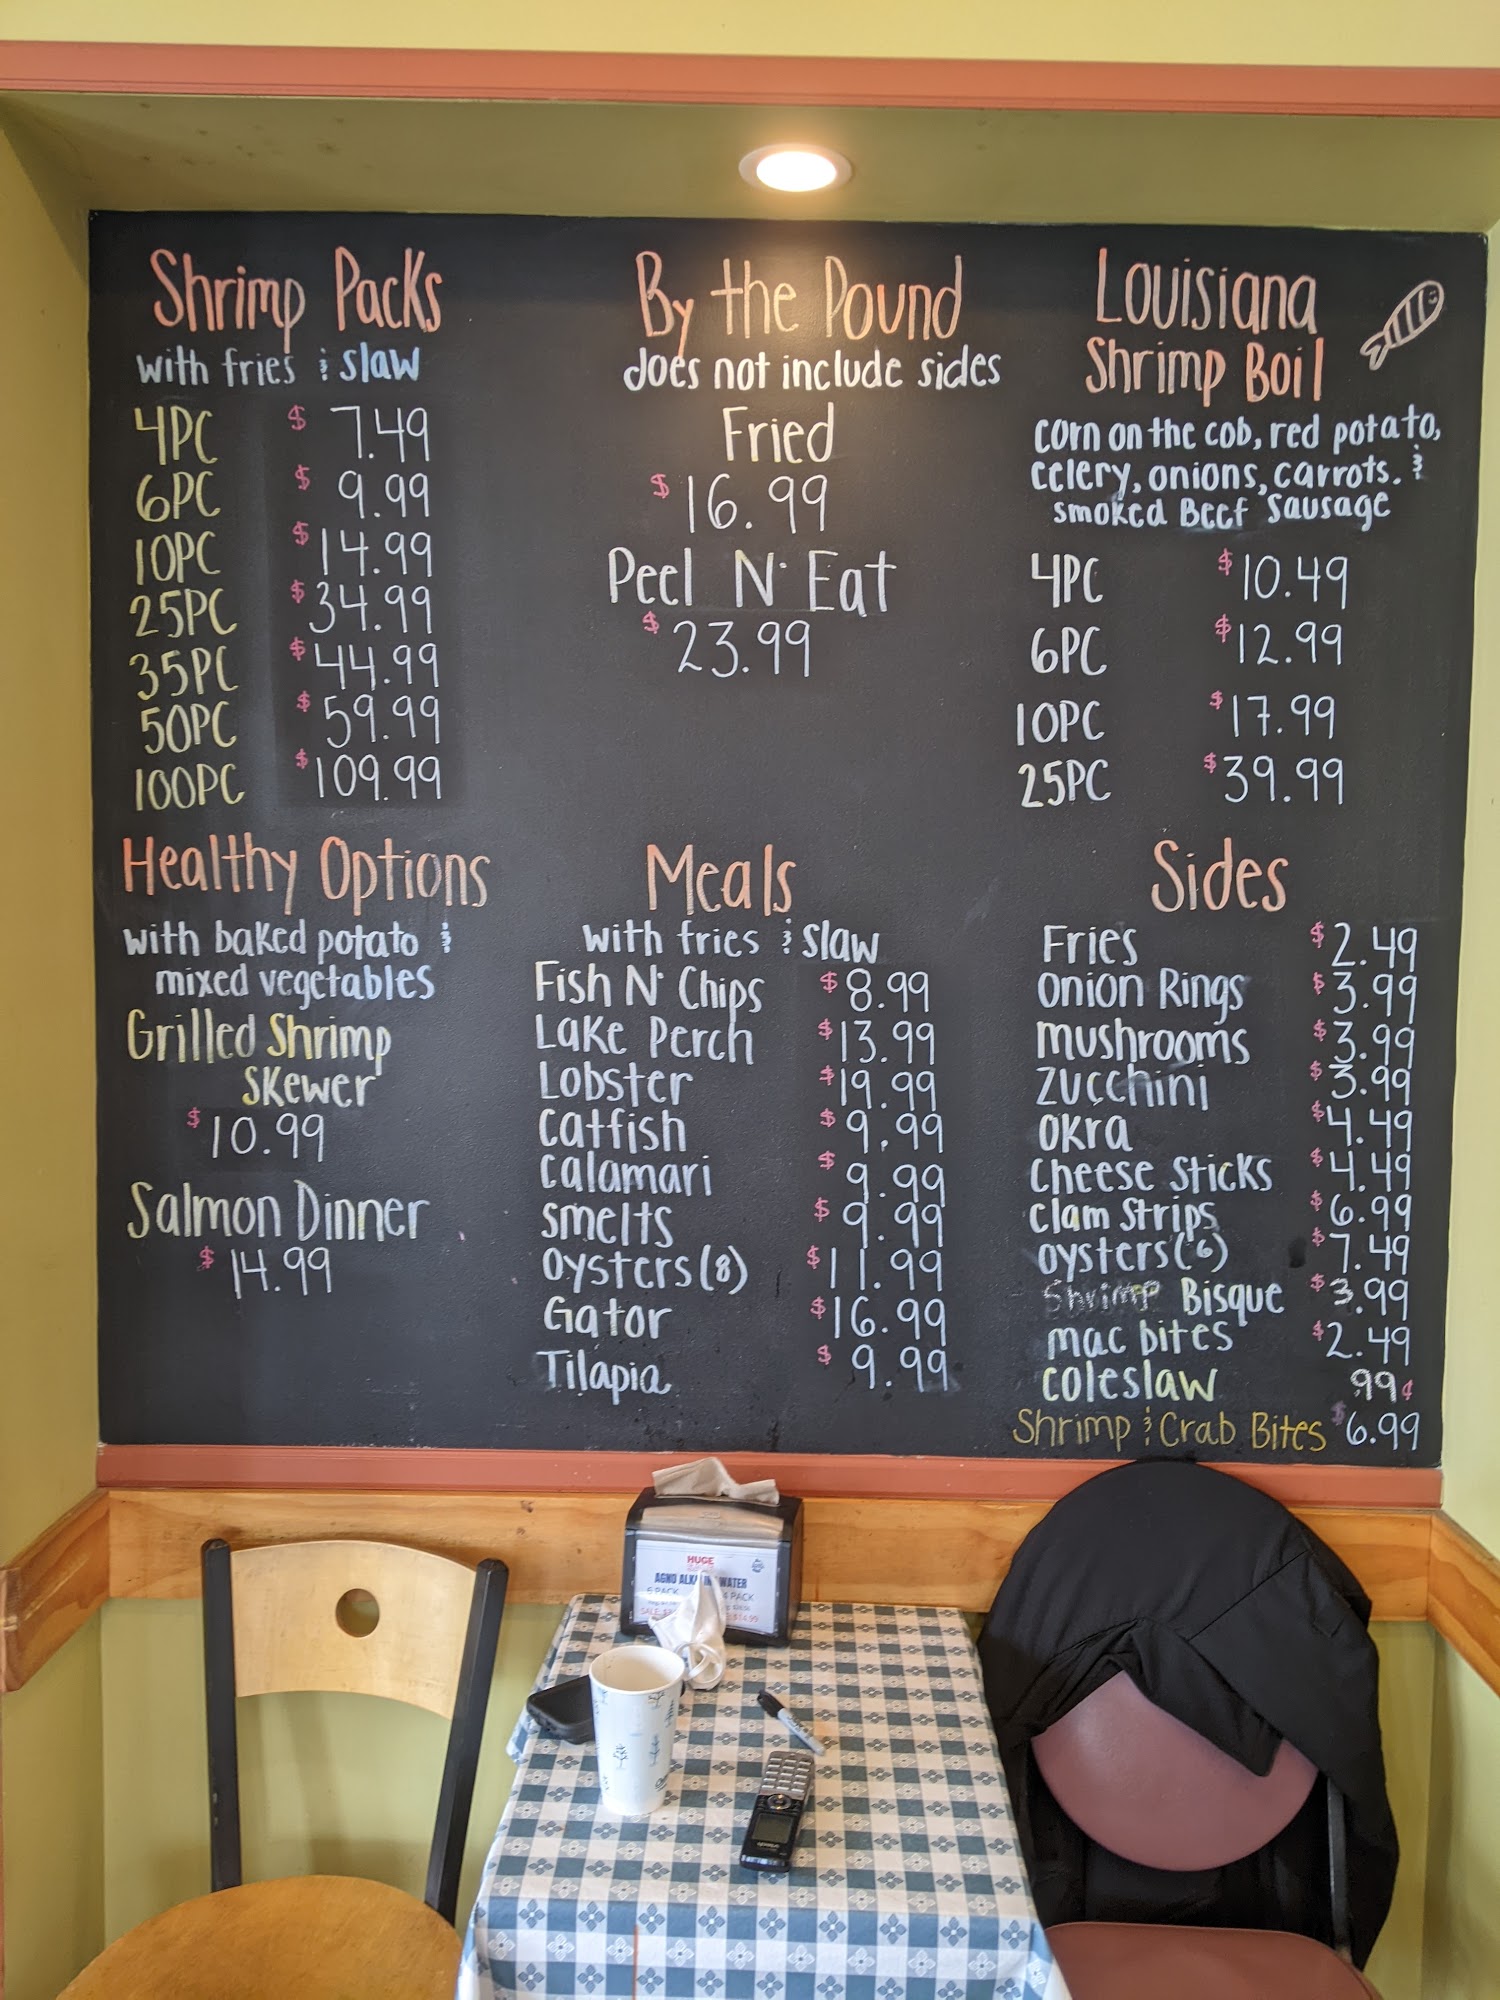 Shrimp Packs
with fries & slaw
4PC $ 7.49
6PC $ 9.99
10PC $ 14.99
25PC $ 34.99
35PC $ 44.99
50PC $ 59.99
100PC $ 109.99
By the Pound
does not include sides
Fried
$ 16.99
Peel N' Eat
$ 23.99
Louisiana
Shrimp Boil
corn on the cob, red potato,
celery, onions, carrots. &
smoked Beef Sausage
4PC $ 10.49
6PC $ 12.99
10PC $ 17.99
25PC $ 39.99
Healthy Options
with baked potato &
mixed vegetables
Grilled Shrimp
Skewer
$ 10.99
Salmon Dinner
$ 14.99
Meals
with fries & slaw
Fish N' Chips $ 8.99
Lake Perch $ 13.99
Lobster $ 19.99
Catfish $ 9.99
Calamari $ 9.99
Smelts $ 9.99
Oysters (8) $ 11.99
Gator $ 16.99
Tilapia $ 9.99
Sides
Fries $ 2.49
Onion Rings $ 3.99
mushrooms $ 3.99
Zucchini $ 3.99
Okra $ 4.49
Cheese Sticks $ 4.49
Clam Strips $ 6.99
Oysters (6) $ 7.49
Shrimp Bisque $ 3.99
mac bites $ 2.49
Coleslaw .99¢
Shrimp & Crab Bites $ 6.99
HUGE
WATER
6 PACK PACK
SALE: $14.99